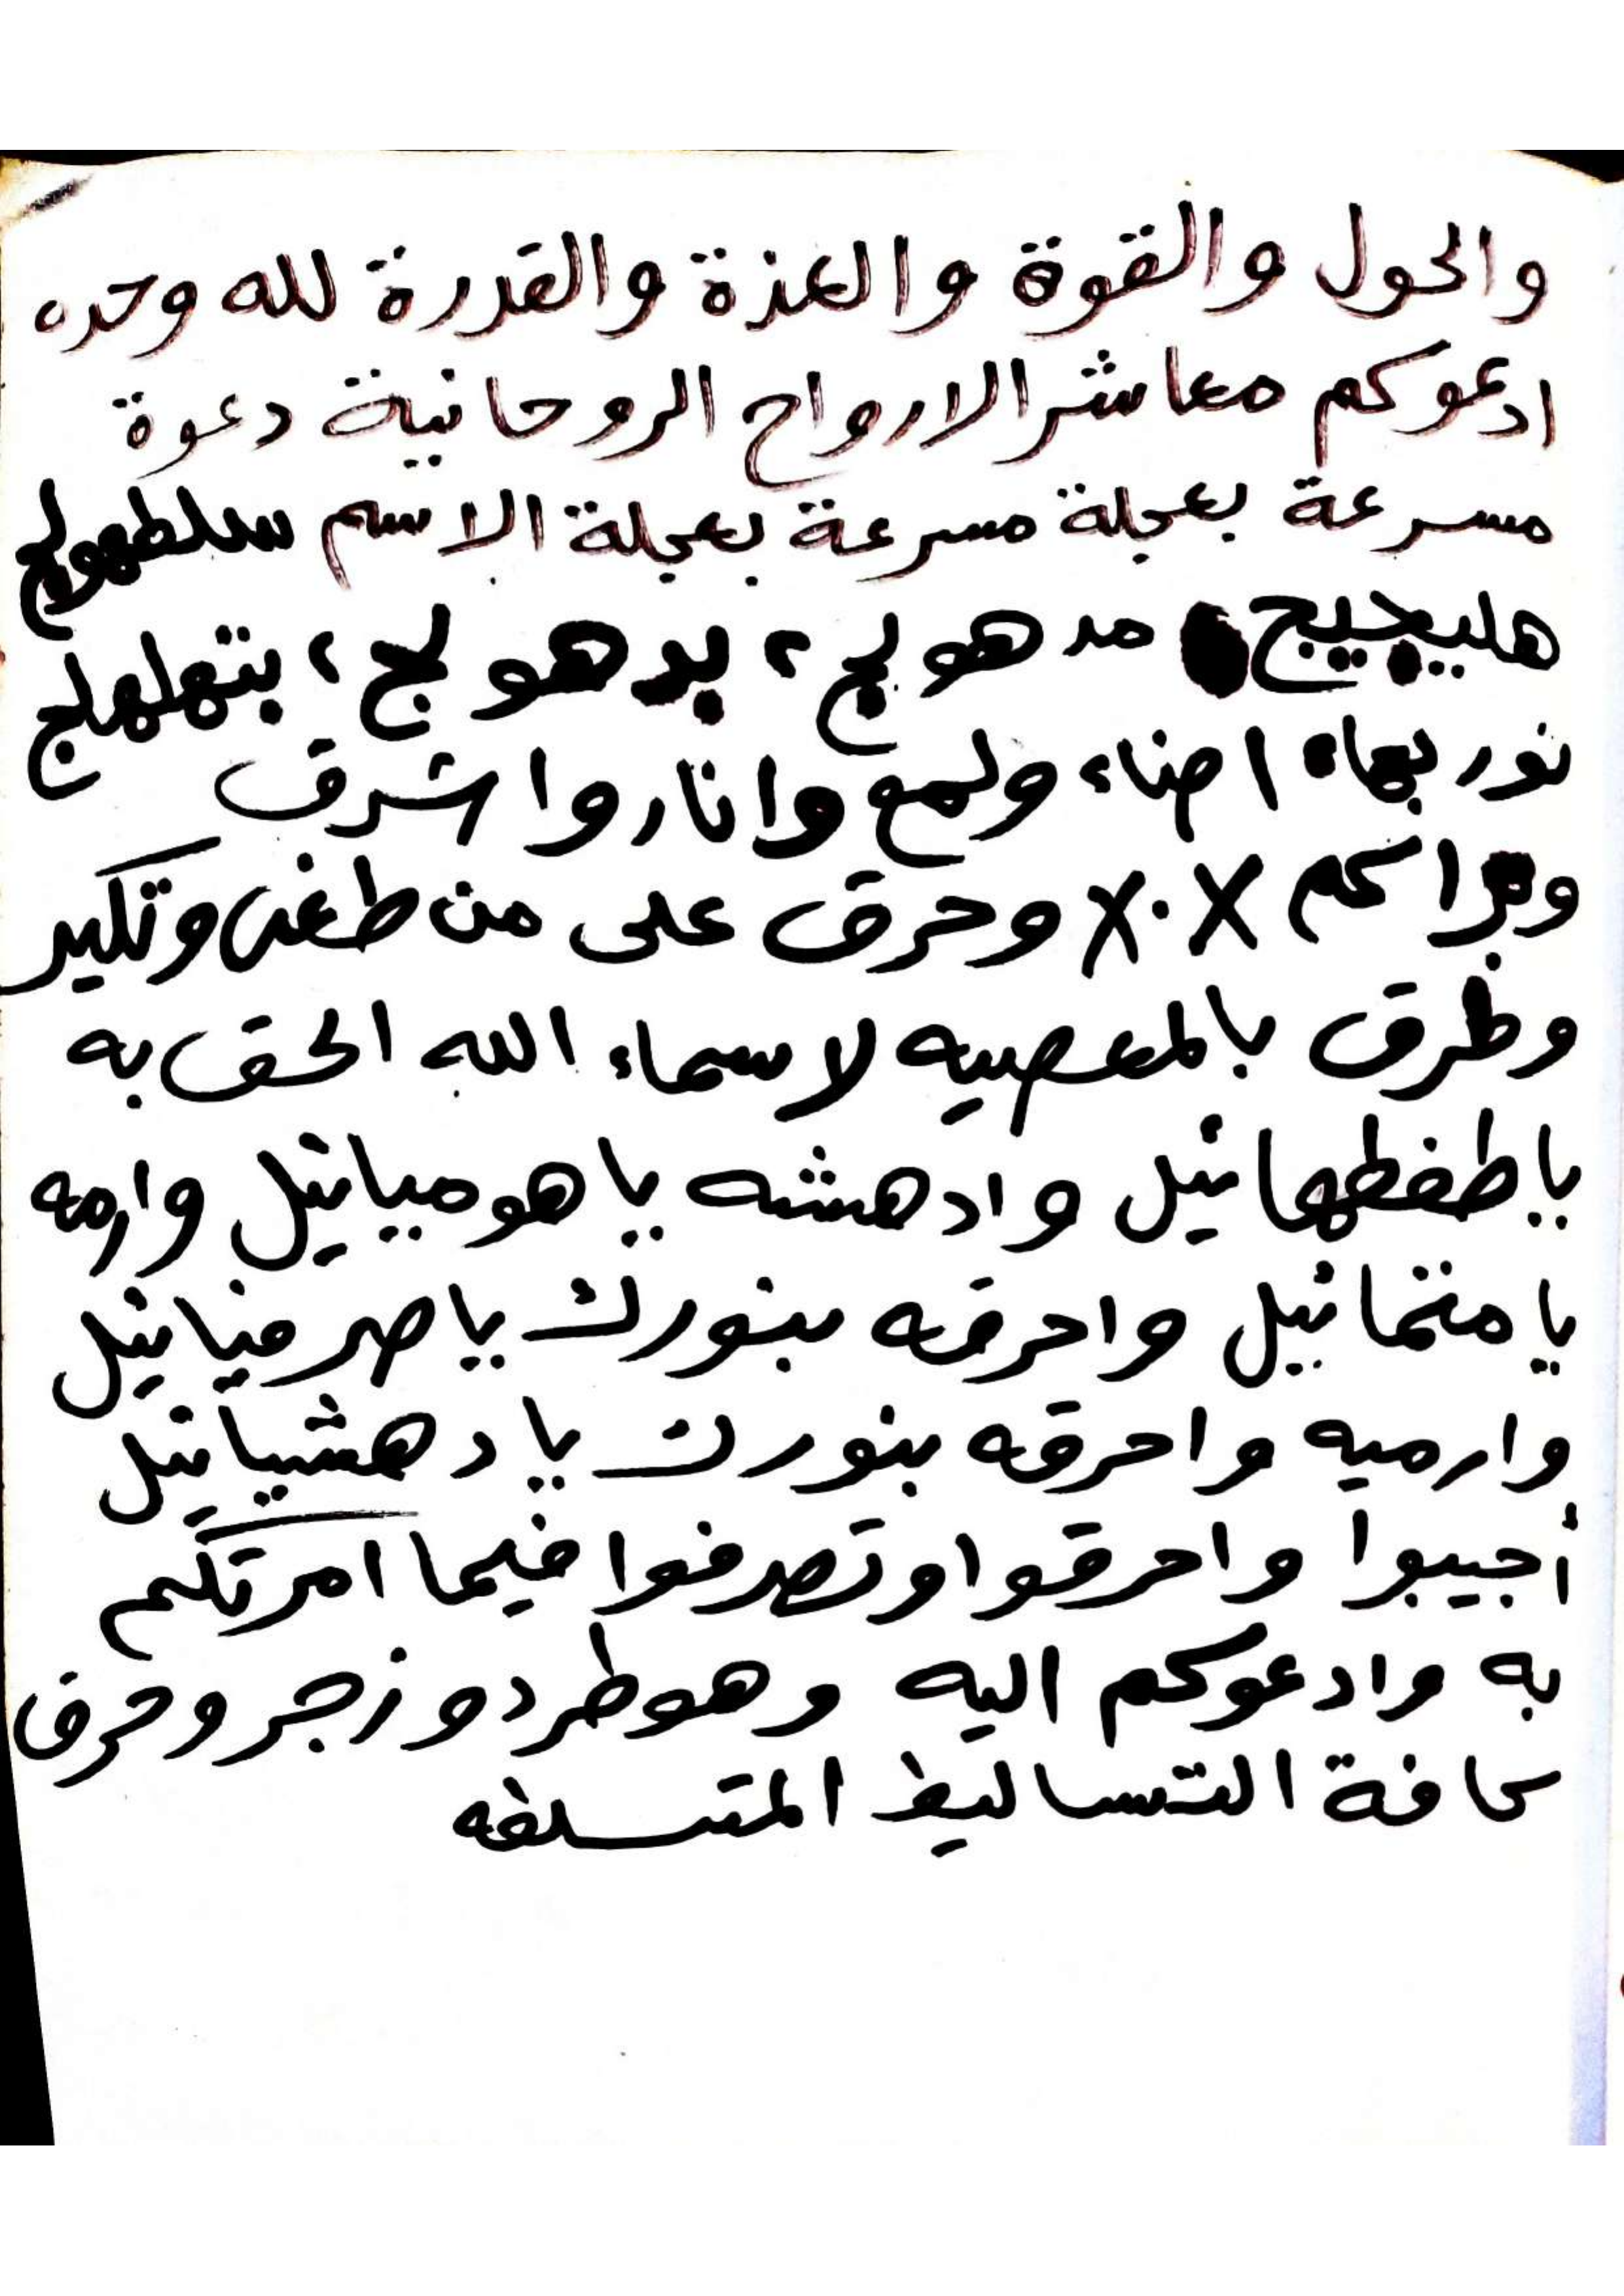 والحول والقوة والعذة والقدرة لله وحده
ادعوكم معاشر الارواح الروحانية دعوة
مسرعة بعجلة مسرعة بعجلة الاسم سلطهولج
هليجيج مدهولج ٢ بدهولج ٢ بتهلهلج
نور بهاه اضاء ولمع وانار واشرق
٨٠٨ وحرق على من طغى وتكبر
وطرق بالمعصيه لاسماء الله الحق به
ياطفطهائيل وادهشه ياهوميائيل وارمه
يا منخائيل واحرقه بنورك ياصرفيائيل
وارميه واحرقه بنورك يادهشيائيل
أجيبوا واحرقوا وتصرفوا فيما امرتكم
به وادعوكم اليه وهوطرد وزجر وحرق
كافة التساليط المتسلفه